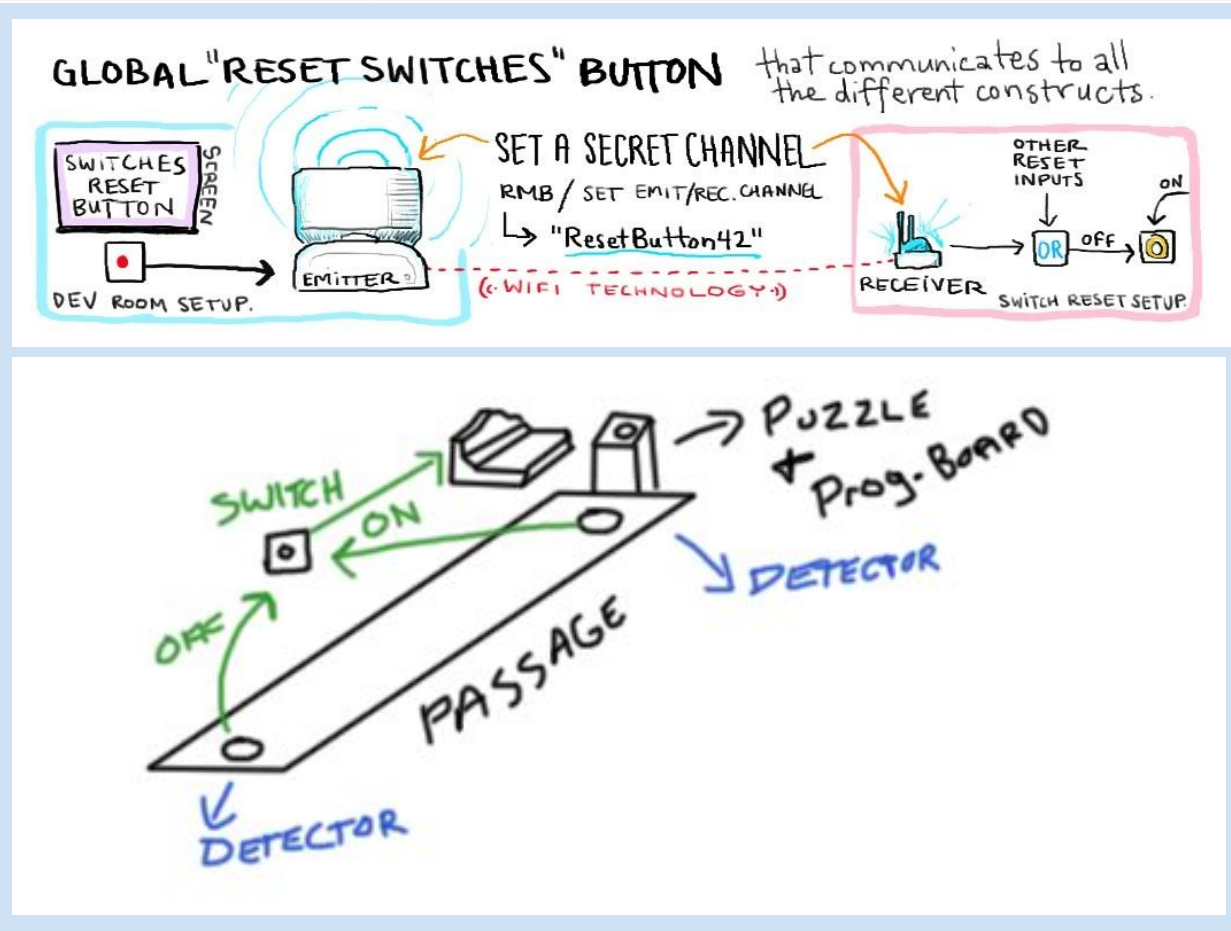 GLOBAL "RESET SWITCHES" BUTTON
that communicates to all
the different constructs.
SWITCHES
RESET
BUTTON
SCREEN
DEV ROOM SETUP.
EMITTER
SET A SECRET CHANNEL
RMB / SET EMIT/REC. CHANNEL
"ResetButton42"
((·WIFI TECHNOLOGY·))
RECEIVER
OTHER
RESET
INPUTS
OR
OFF
ON
SWITCH RESET SETUP.
PUZZLE
+
Prog-BOARD
SWITCH
ON
OFF
DETECTOR
PASSAGE
DETECTOR